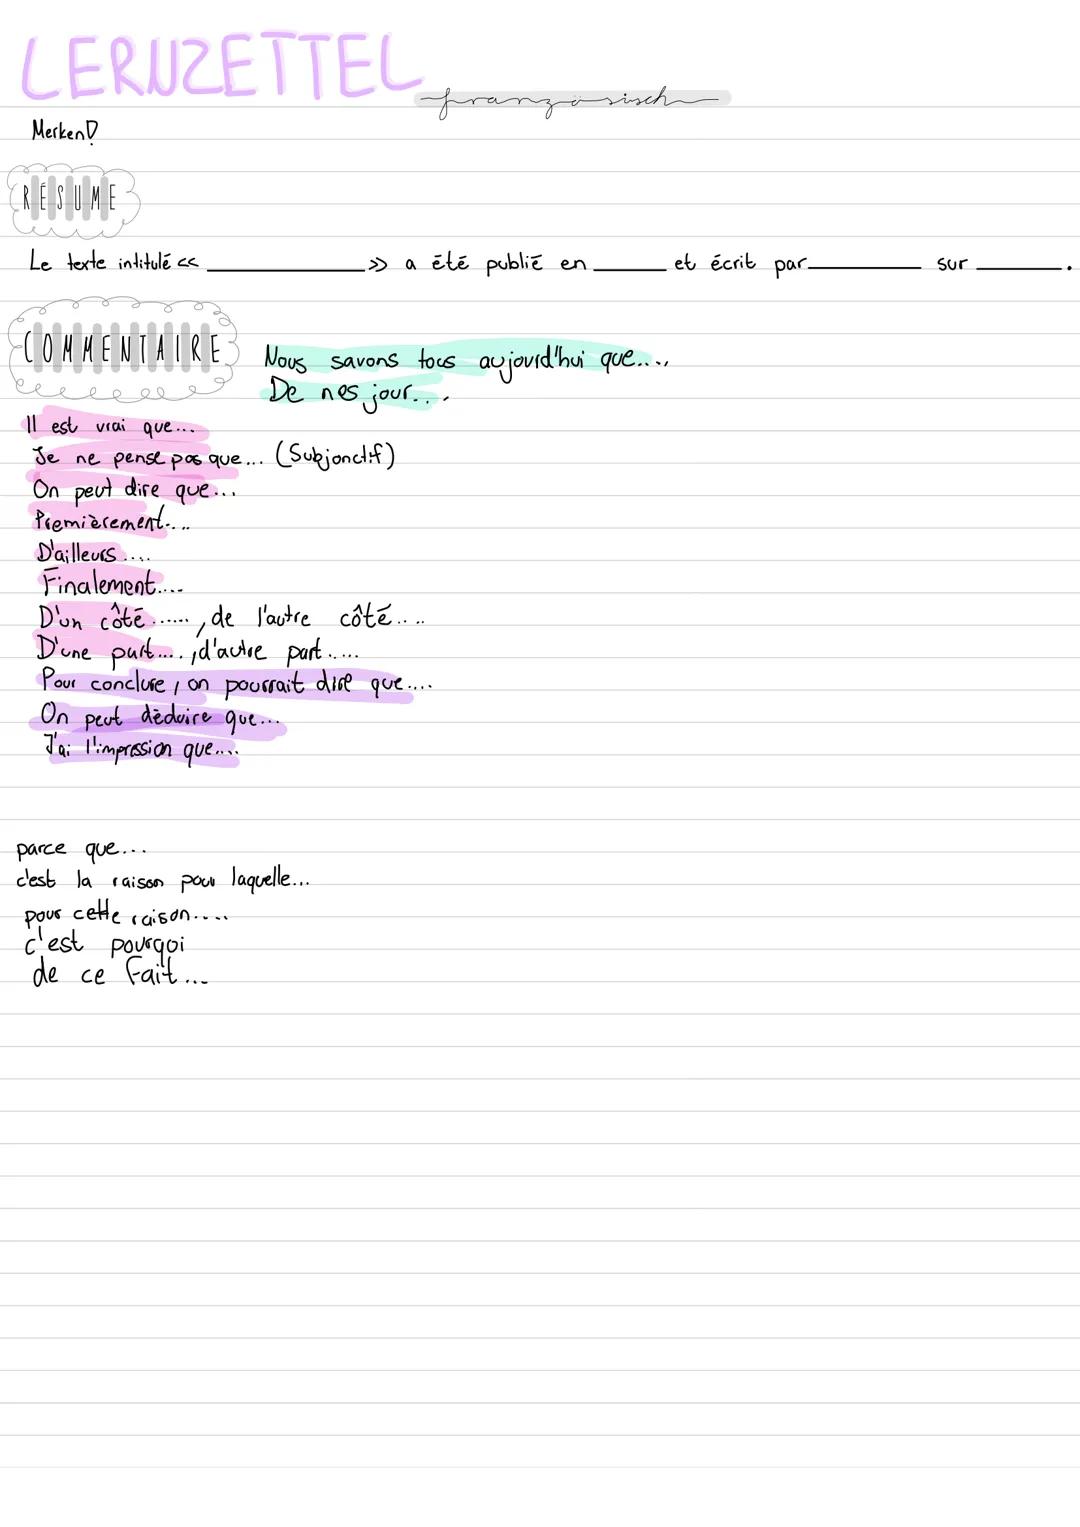 LERNZETTEL
französisch
Merken!
RÉSUMÉ
Le texte intitulé << ________ >> a été publié en ______ et écrit par ________ sur ______.
COMMENTAIRE
Nous savons tous aujourd'hui que....,
De nos jour...,
Il est vrai que...
Je ne pense pas que... (Subjonctif)
On peut dire que...
Premièrement....
D'ailleurs....
Finalement....
D'un côté ......, de l'autre côté....
D'une part...., d'autre part.....
Pour conclure, on pourrait dire que....
On peut déduire que...
J'ai l'impression que....
parce que...
c'est la raison pour laquelle...
pour cette raison.....
c'est pourqoi
de ce fait...